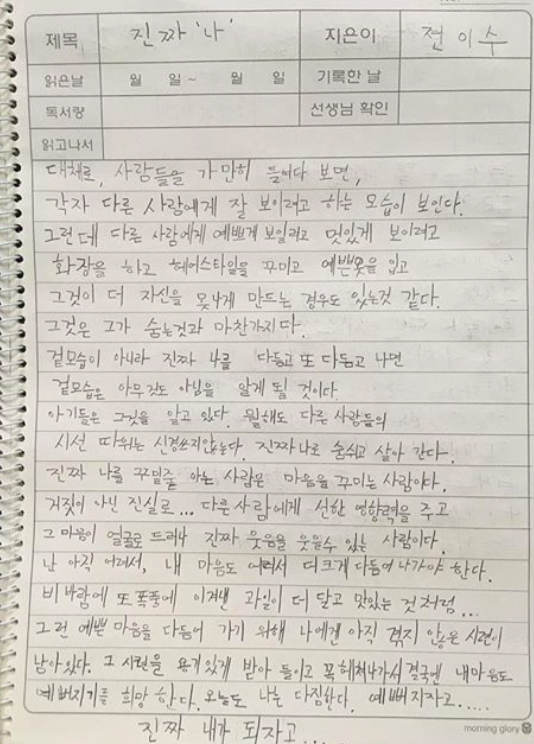 제목 진짜 '나' 지은이 전이수
읽은날 월 일~ 월 일 기록한 날
독서량 선생님 확인
읽고나서
대체로, 사람들을 가만히 들여다 보면,
각자 다른 사람에게 잘 보이려고 하는 모습이 보인다.
그런데 다른 사람에게 예쁘게 보일려고 멋있게 보이려고
화장을 하고 헤어스타일을 꾸미고 예쁜옷을 입고
그것이 더 자신을 못나게 만드는 경우도 있는것 같다.
그것은 그가 숨는것과 마찬가지다.
겉모습이 아니라 진짜 나를 다듬고 또 다듬고 나면
겉모습은 아무것도 아님을 알게 될 것이다.
아기들은 그것을 알고 있다. 뭘해도 다른 사람들의
시선 따위는 신경쓰지않는다. 진짜나로 숨쉬고 살아 간다.
진짜 나를 꾸밀줄 아는 사람은 마음을 꾸미는 사람이다.
거짓이 아닌 진실로... 다른사람에게 선한 영향력을 주고
그 마음이 얼굴로 드러나 진짜 웃음을 웃을수 있는 사람이다.
난 아직 어려서, 내 마음도 어려서 더크게 다듬어 나가야 한다.
비바람에 또 폭풍에 이겨낸 과일이 더 달고 맛있는 것처럼...
그런 예쁜 마음을 다듬어 가기 위해 나에겐 아직 겪지 않은 시련이
남아있다. 그 시련을 용기있게 받아 들이고 꼭헤쳐나가서 결국엔 내마음도
예뻐지기를 희망 한다. 오늘도 나는 다짐한다. 예뻐지자고.....
진짜 내가 되자고...
morning glory